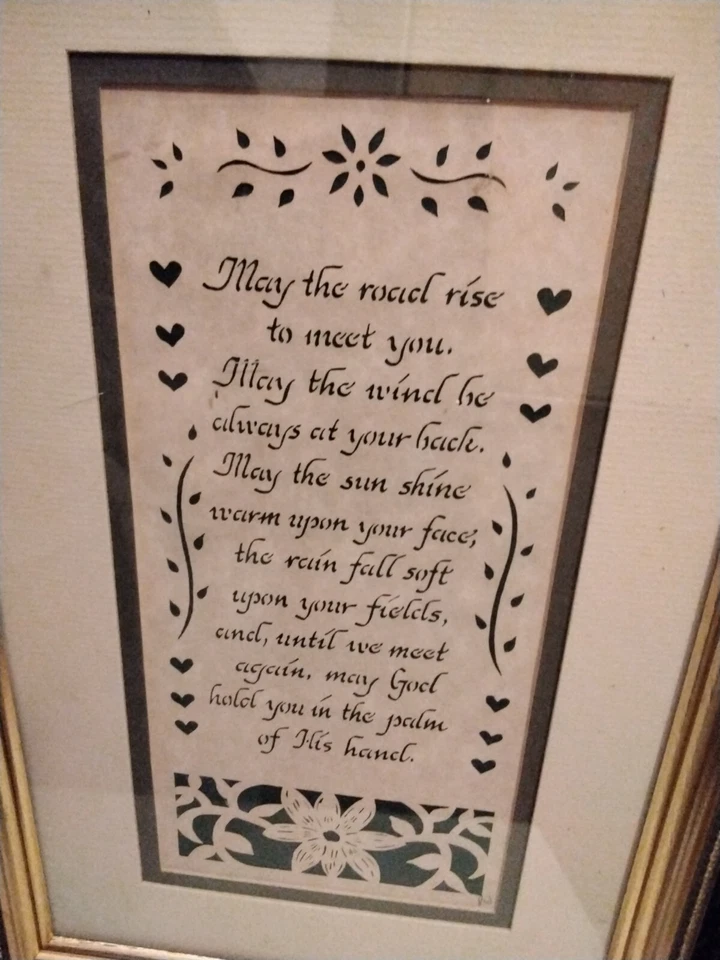 May the road rise
to meet you.
May the wind be
always at your back.
May the sun shine
warm upon your face,
the rain fall soft
upon your fields,
and, until we meet
again, may God
hold you in the palm
of His hand.